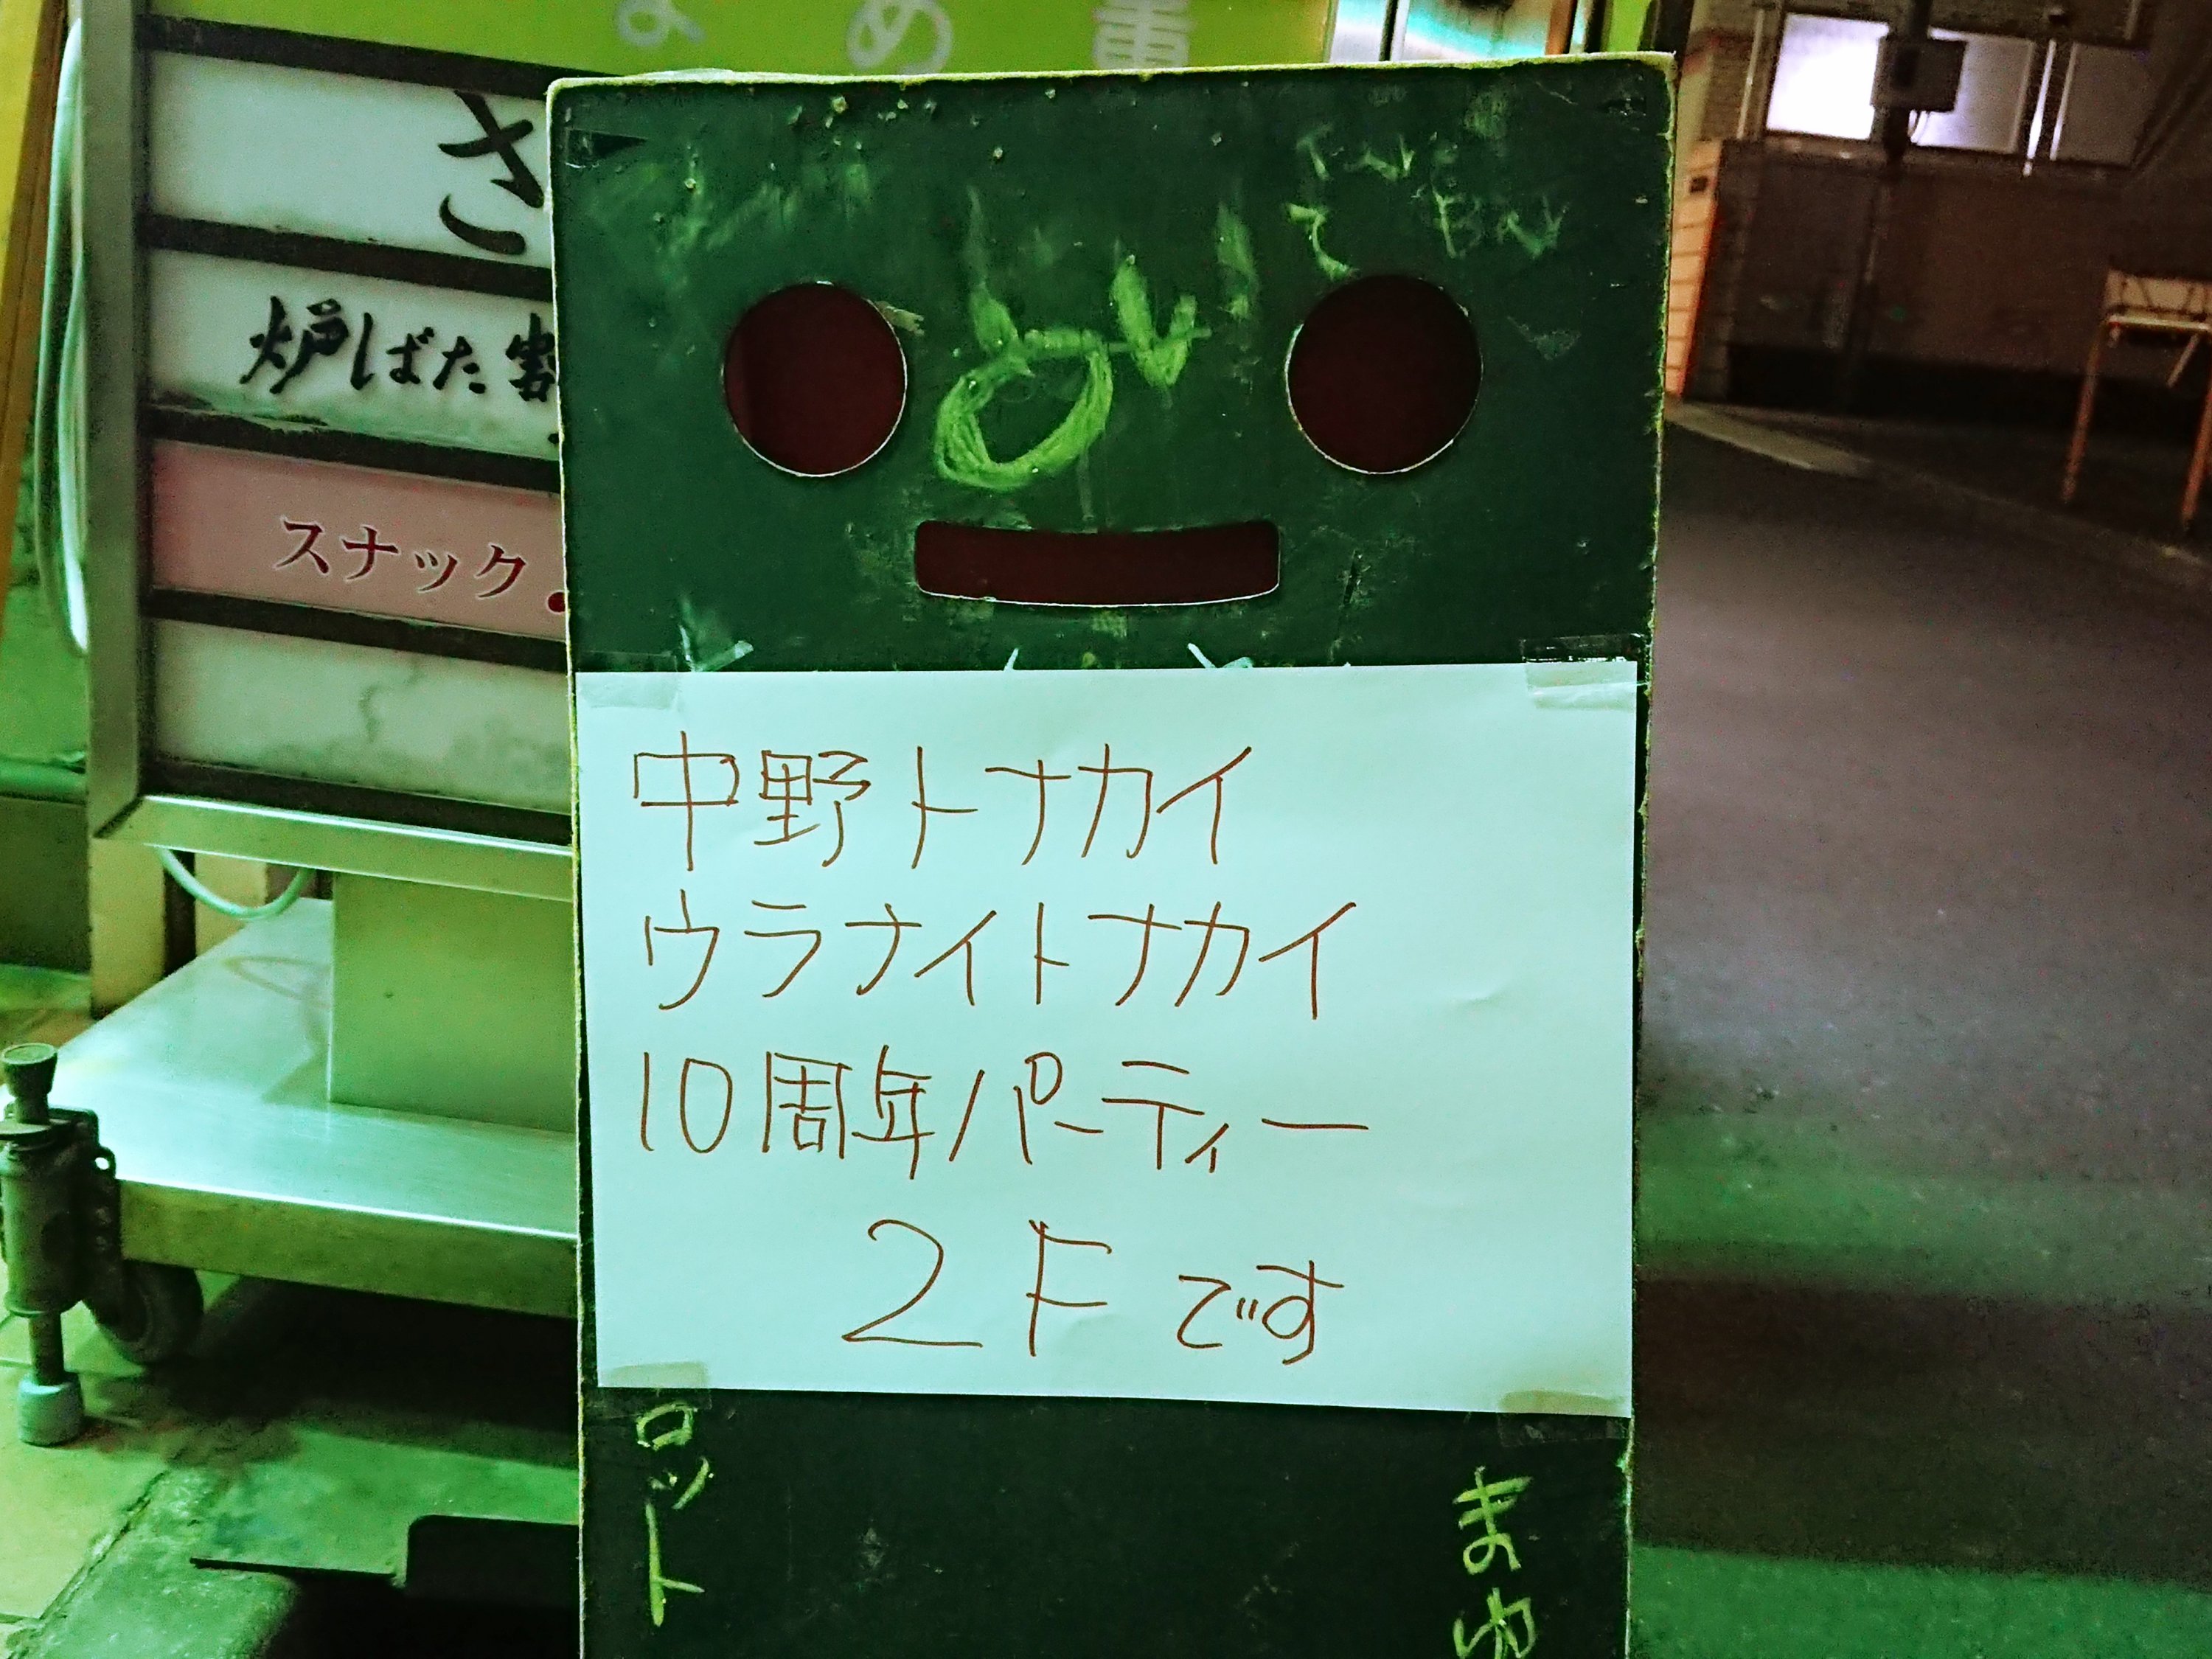 さ
炉ばた割
スナック
中野トナカイ
ウラナイトナカイ
10周年パーティー
2Fです
ロット
まゆ